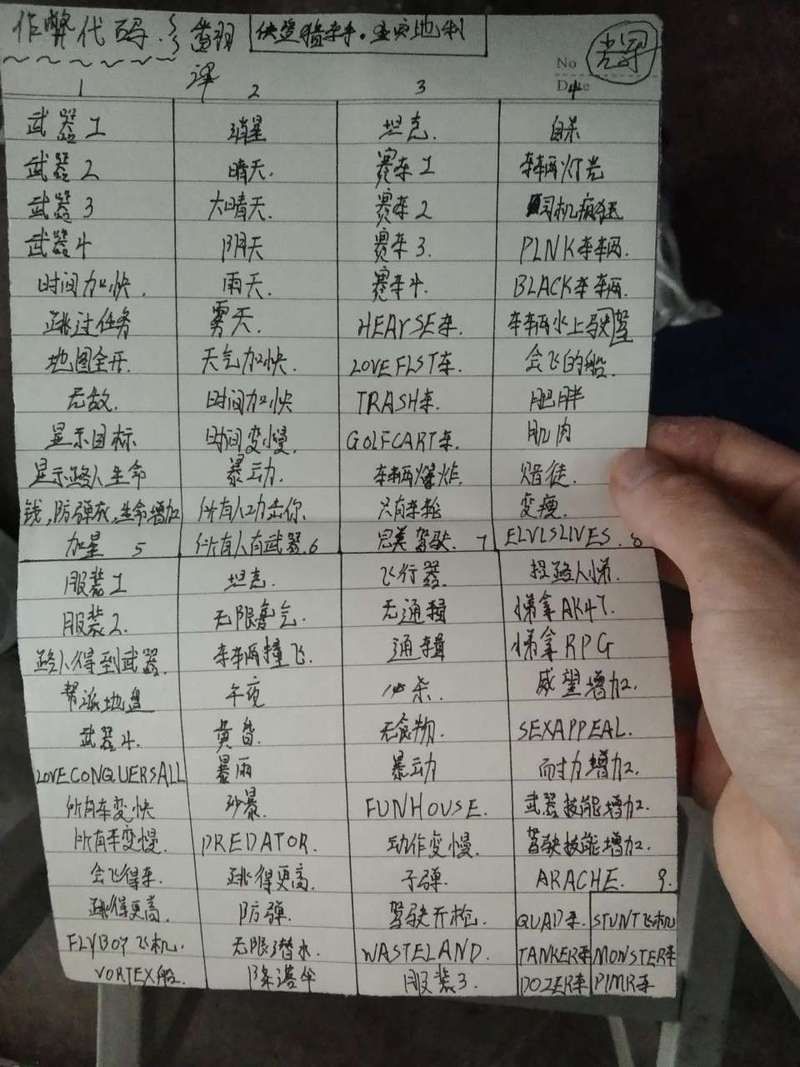 作弊代码.
No
Date
1 2 3 4
武器1 消星 坦克. 自杀
武器2 晴天. 赛车1 车辆灯光
武器3 大晴天. 赛车2 司机疯狂
武器4 阴天 赛车3. PLNK车辆.
时间加快. 雨天. 赛车4. BLACK车辆.
跳过任务 雾天. HEAYSE车. 车辆水上驾驶
地图全开. 天气加快. LOVEFLST车. 会飞的船.
无敌. 时间加快 TRASH车. 肥胖
显示目标 时间变慢. GOLFCART车. 肌肉
显示路人生命 暴动. 车辆爆炸. 赌徒.
钱,防弹衣,生命增加 所有人功击你. 只有车轮 变瘦.
加星 5 所有人有武器. 6 完美驾驶. 7 ELVLSLIVES. 8
服装1 坦克. 飞行器.
服装2. 无限氧气. 无通辑 拿AK47.
路人得到武器. 车辆撞飞. 通辑 拿RPG
帮派地盘 午夜 必杀. 威望增加.
武器4. 黄昏. 无食物. SEXAPPEAL.
LOVECONQUERSALL 暴雨 暴动 耐力增加.
所有车变快 沙暴. FUNHOUSE. 武器技能增加.
所有车变慢. PREDATOR. 动作变慢. 驾驶技能增加.
会飞得车. 跳得更高. 子弹. ARACHE. 9.
跳得更高. 防弹. 驾驶开枪. QUAD车. STUNT飞机
FLYBOY飞机. 无限潜水. WASTELAND. TANKER车 MONSTER车
VORTEX船. 降落伞 服装3. DOZER车 PIMR车